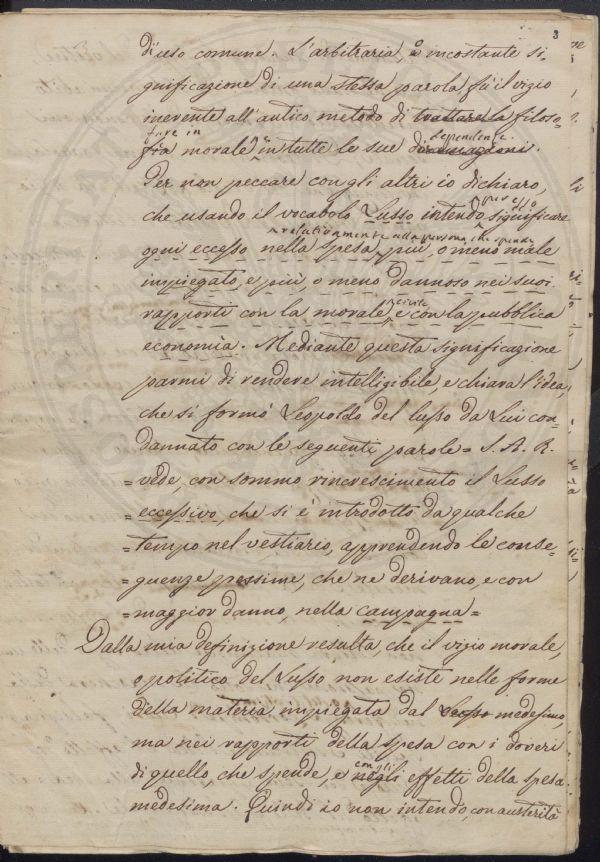 3
d'uso comune. L'arbitraria, o incostante si-
gnificazione di una stessa parola fù il vizio
inerente all'antico metodo di trattare la filoso-
fare in dependenze
fia morale in tutte le sue diramazioni.
Per non peccare con gli altri io dichiaro,
espresso
che usando il vocabolo Lusso intendo significare
relativamente alla persona che spende
ogni eccesso nella spesa più, o meno male
impiegato, e più, o meno dannoso nei suoi
rapporti con la morale e con la pubblica
economia. Mediante questa significazione
parmi di rendere intelligibile e chiara l'idea,
che si formò Leopoldo del lusso da Lui con-
dannato con le seguenti parole = S. A. R.
= vede, con sommo rincrescimento il Lusso
eccessivo, che si è introdotto da qualche
= tempo nel vestiario, apprendendo le conse-
= guenze pessime, che ne derivano, e con
= maggior danno, nella campagna =
Dalla mia definizione resulta, che il vizio morale,
o politico del Lusso non esiste nelle forme
della materia impiegata dal Lusso medesimo,
ma nei rapporti della spesa con i doveri
con gli
di quello, che spende, e negli effetti della spesa
medesima. Quindi io non intendo, con austerità